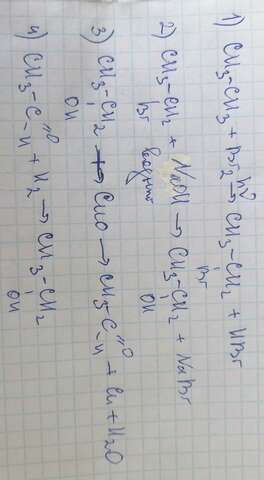 1) CH3-CH3 + Br2 →hν CH3-CH2 + HBr
Br
2) CH3-CH2 + NaOH → CH3-CH2 + NaBr
Br водный OH
3) CH3-CH2 + CuO → CH3-C=O + Cu + H2O
OH -H
4) CH3-C=O + H2 → CH3-CH2
-H OH